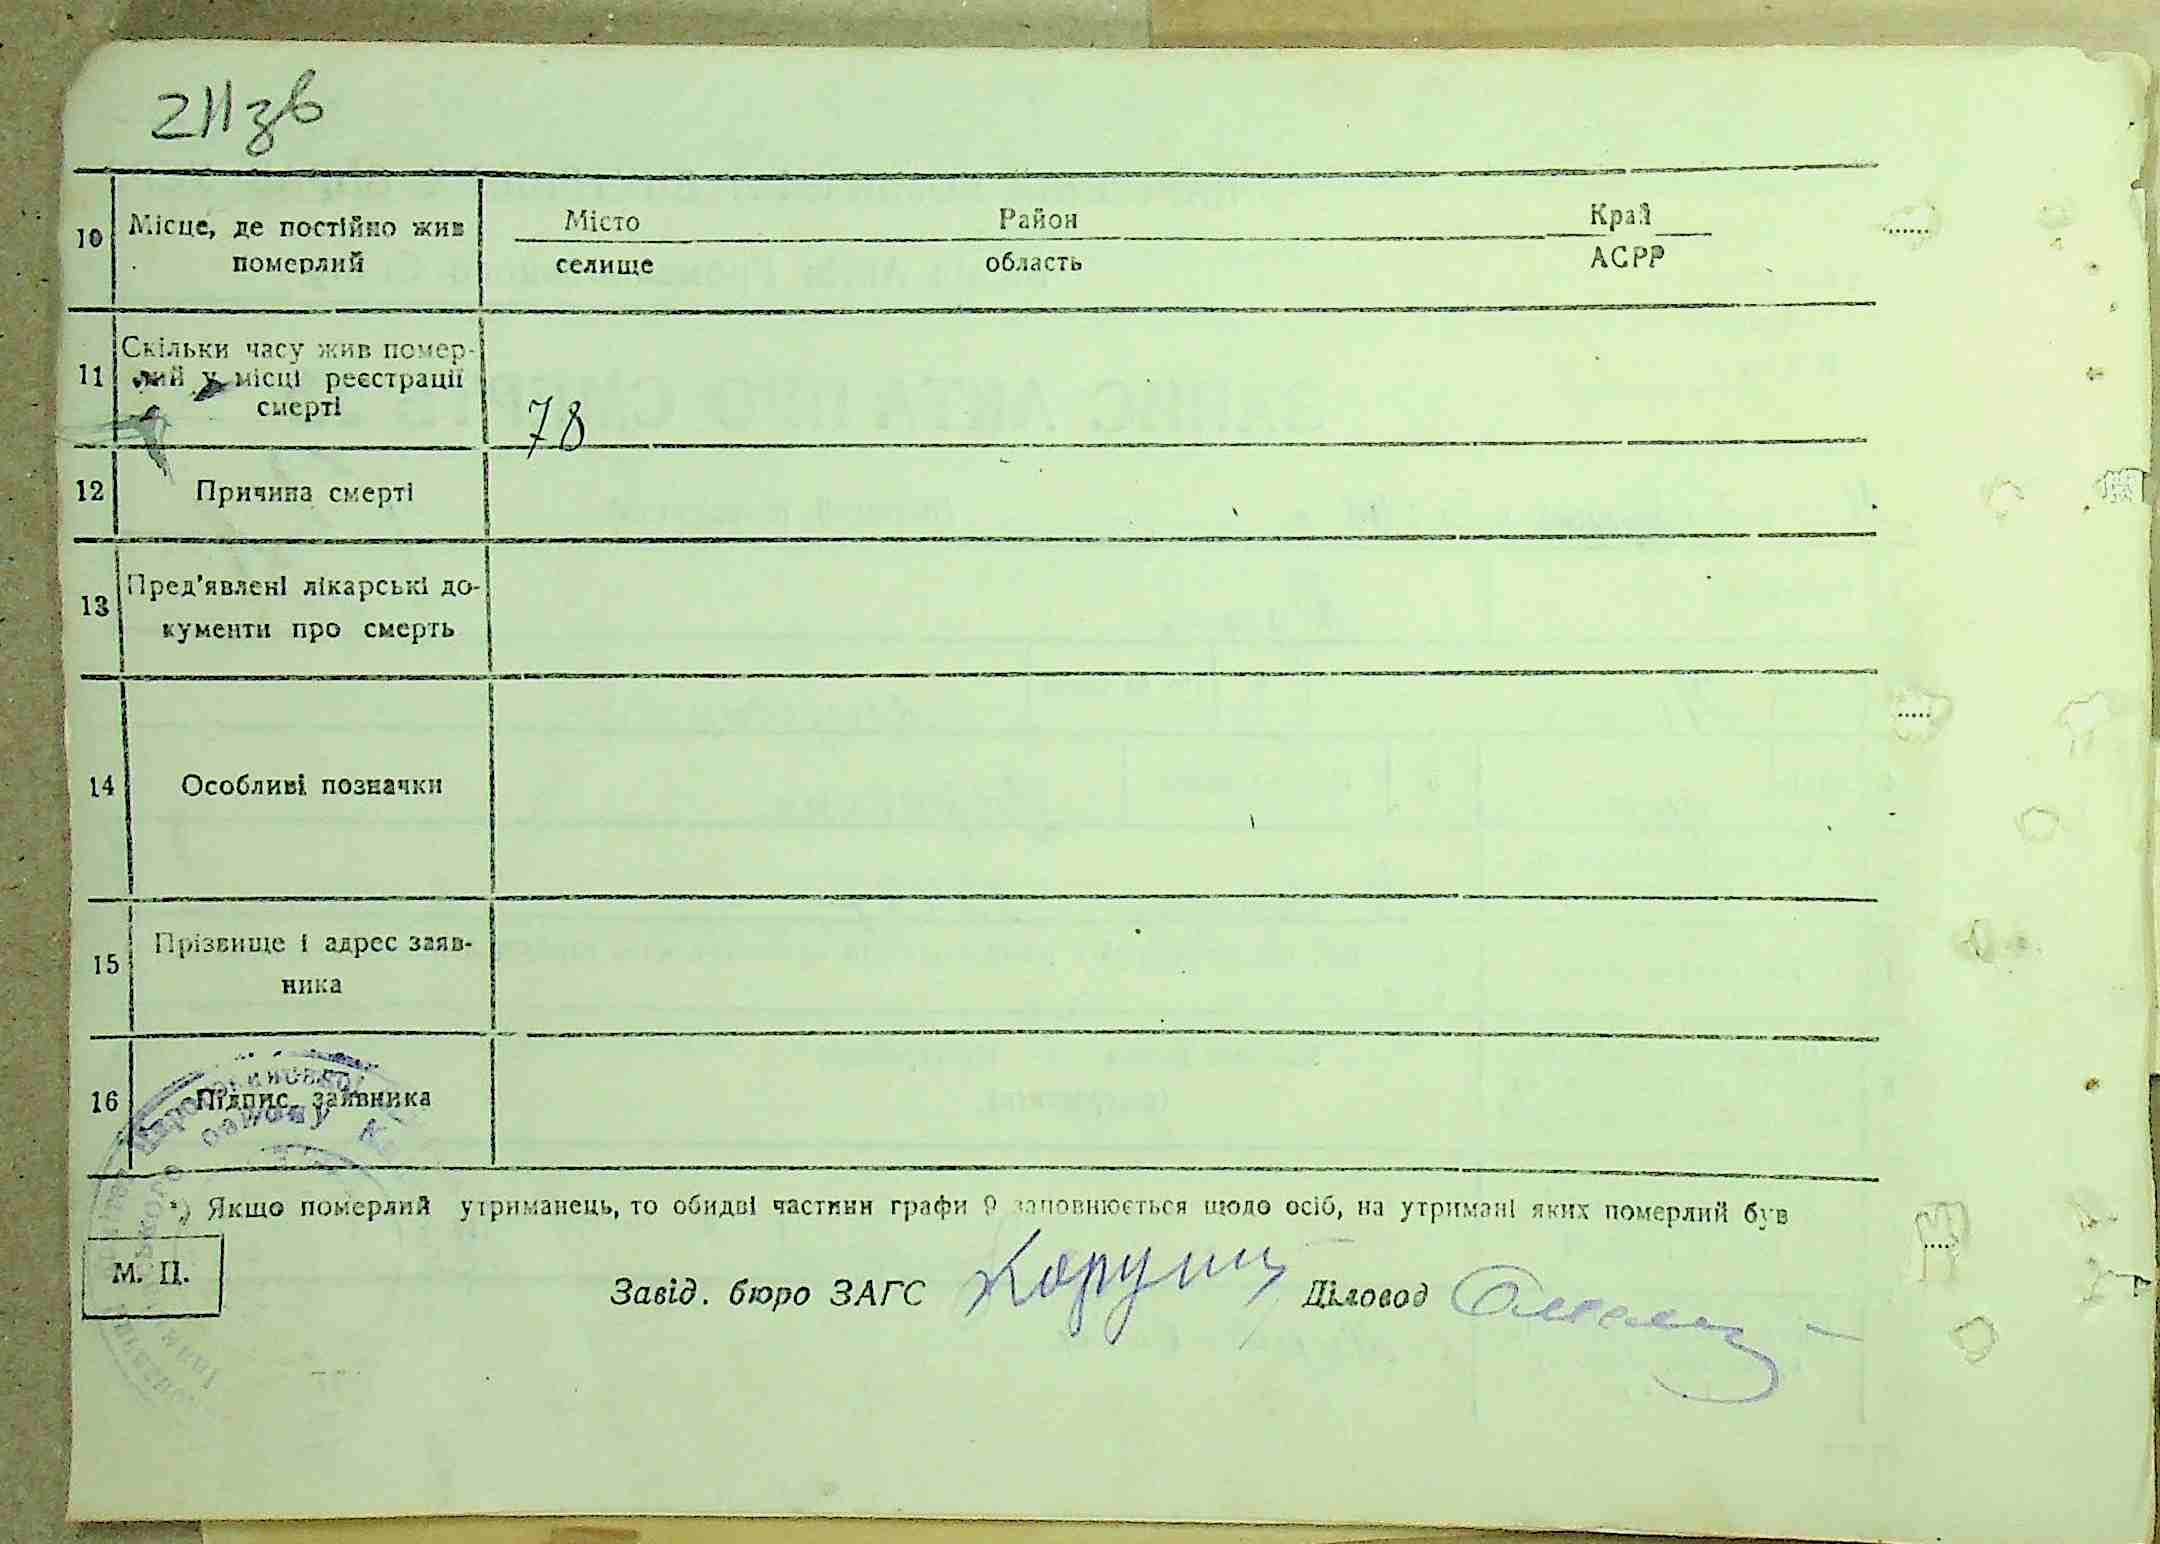 211зв
10 Місце, де постійно жив Місто Район Край
померлий селище область АСРР
Скільки часу жив помер-
11 лий у місці реєстрації
смерті 78
12 Причина смерті
Пред'явлені лікарські до-
13 кументи про смерть
14 Особливі позначки
Прізвище і адрес заяв-
15
ника
16 Підпис заявника
району
*) Якщо померлий утриманець, то обидві частини графи 9 заповнюється щодо осіб, на утримані яких померлий був
М. П.
Завід. бюро ЗАГС Діловод